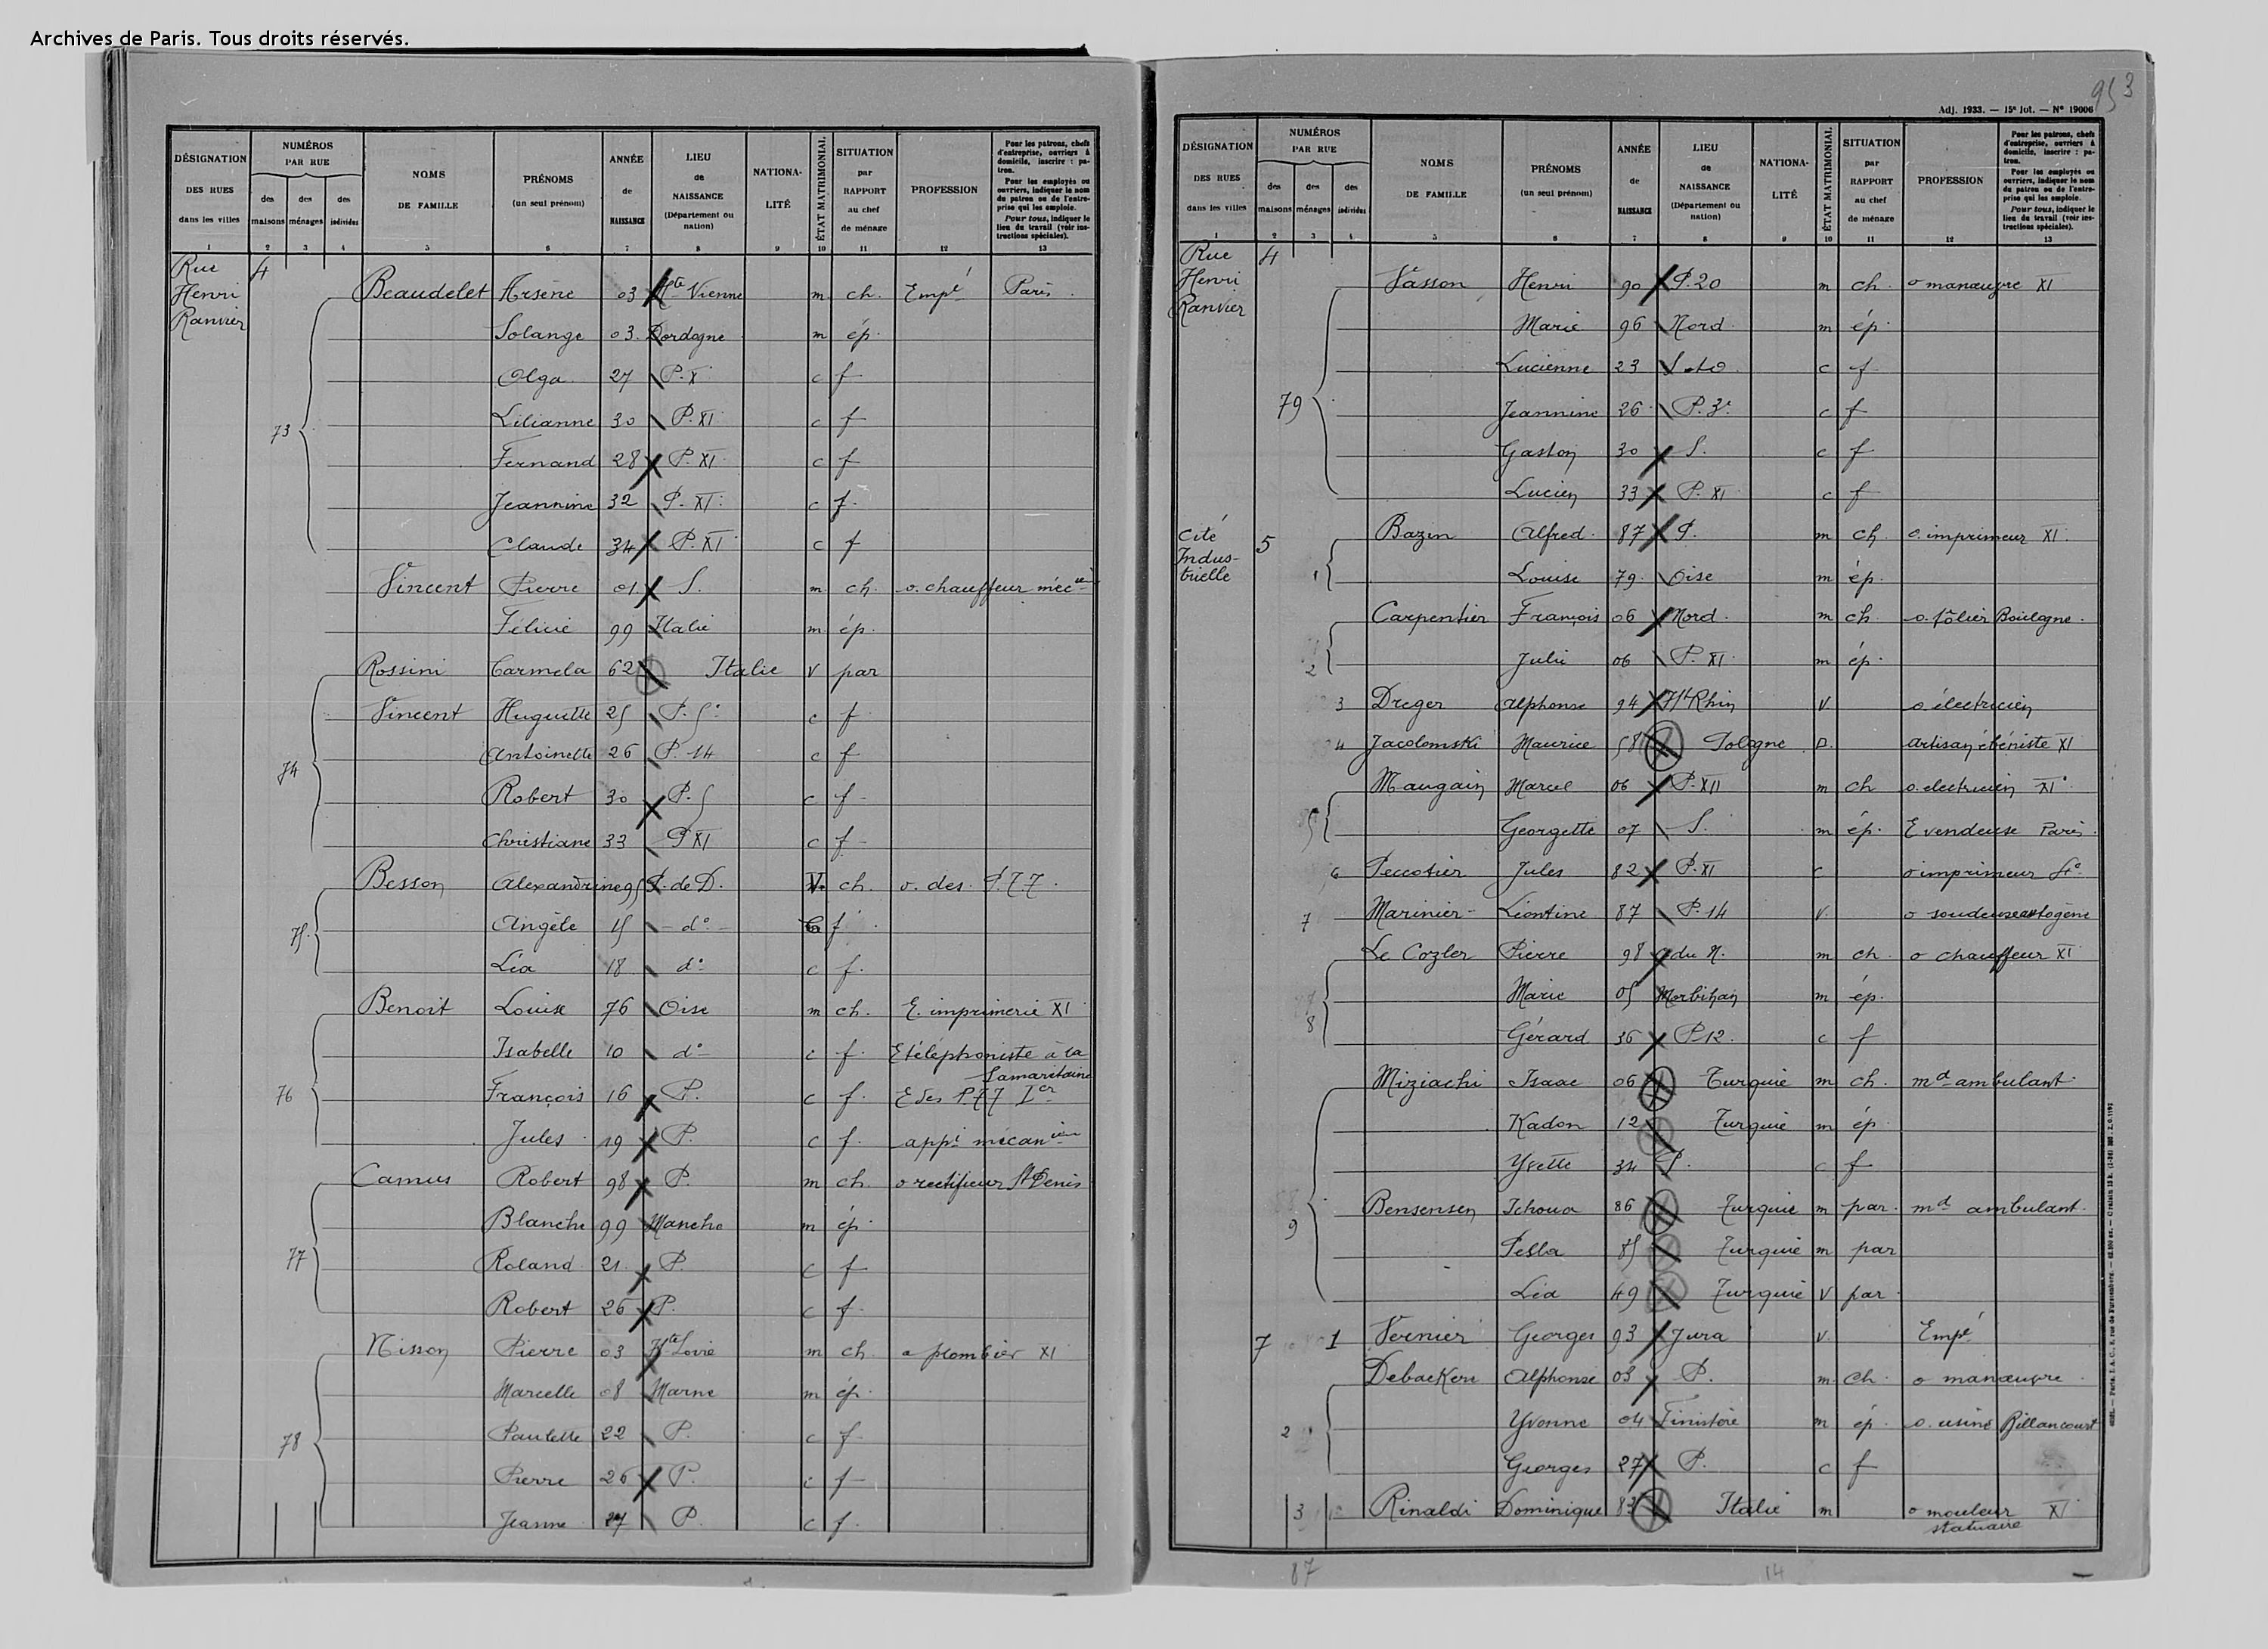 Archives de Paris. Tous droits réservés.
DÉSIGNATION DES RUES dans les villes | NUMÉROS PAR RUE des maisons des ménages des individus | NOMS DE FAMILLE | PRÉNOMS (un seul prénom) | ANNÉE de NAISSANCE | LIEU de NAISSANCE (Département ou nation) | NATIONALITÉ | ÉTAT MATRIMONIAL | SITUATION par RAPPORT au chef de ménage | PROFESSION | Pour les patrons, chefs d'entreprise, ouvriers à domicile, inscrire : patron. Pour les employés ou ouvriers, indiquer le nom du patron ou de l'entreprise qui les emploie. Pour tous, indiquer le lieu du travail (voir instructions spéciales).
1 2 3 4 5 6 7 8 9 10 11 12 13
Rue Henri Ranvier 4
73 Beaudelet Arsène 03 Hte Vienne m ch. Empé Paris
Solange 03 Dordogne m ép.
Olga 27 P. X c f
Lilianne 30 P. XI c f
Fernand 28 P. XI c f
Jeannine 32 P. XI c f
Claude 34 P. XI c f
74 Vincent Pierre 01 S. m ch. o. chauffeur mécien
Félicie 99 Italie m ép.
Rossini Carmela 62 Italie V par
Vincent Huguette 25 P. 5e c f
Antoinette 26 P. 14 c f
Robert 30 P. 5 c f
Christiane 33 P XI c f
75 Besson Alexandrine 95 P. de D. V. ch. o. des P.T.T.
Angèle 15 do f
Léa 18 do c f.
76 Benoit Louise 76 Oise m ch. E. imprimerie XI
Isabelle 10 do c f. E téléphoniste à la Samaritaine
François 16 P. c f. E des PTT Ier
Jules 19 P. c f. appi mécanicien
77 Camus Robert 98 P. m ch. o rectifieur St Denis
Blanche 99 Manche m ép.
Roland 21 P. c f
Robert 26 P. c f.
78 Nisson Pierre 03 Hte Loire m ch o plombier XI
Marcelle 08 Marne m ép.
Paulette 22 P. c f
Pierre 26 P. c f
Jeanne 27 P. c f.
953
Adj. 1933. — 15e lot. — No 19006
DÉSIGNATION DES RUES dans les villes | NUMÉROS PAR RUE des maisons des ménages des individus | NOMS DE FAMILLE | PRÉNOMS (un seul prénom) | ANNÉE de NAISSANCE | LIEU de NAISSANCE (Département ou nation) | NATIONALITÉ | ÉTAT MATRIMONIAL | SITUATION par RAPPORT au chef de ménage | PROFESSION | Pour les patrons, chefs d'entreprise, ouvriers à domicile, inscrire : patron. Pour les employés ou ouvriers, indiquer le nom du patron ou de l'entreprise qui les emploie. Pour tous, indiquer le lieu du travail (voir instructions spéciales).
1 2 3 4 5 6 7 8 9 10 11 12 13
Rue Henri Ranvier 4
79 Vasson Henri 90 P. 20 m ch. o manœuvre XI
Marie 96 Nord m ép.
Lucienne 23 S. et O c f
Jeannine 26 P. 3e c f
Gaston 30 S. c f
Lucien 33 P. XI c f
Cité Industrielle 5
1 Bazin Alfred 87 P. m ch. o. imprimeur XI
Louise 79 Oise m ép.
2 Carpentier François 06 Nord m ch. o. tôlier Boulogne
Julie 06 P. XI m ép.
3 Dreger Alphonse 94 Ht Rhin V o. électricien
4 Jacolomski Maurice 58 Pologne D. artisan ébéniste XI
5 Maugain Marcel 06 P. XII m ch o. électricien XIe
Georgette 07 S. m ép. E vendeuse Paris
6 Peccotier Jules 82 P. XI c o imprimeur
7 Marinier Léontine 87 P. 14 V. o soudeuse autogène
8 Le Cozler Pierre 98 C du N. m ch. o chauffeur XI
Marie 05 Morbihan m ép.
Gérard 36 P. 12 c f
9 Miziachi Isaac 06 Turquie m ch. md ambulant
Kadon 12 Turquie m ép
Yvette 34 P. c f
Bensensen Ichoua 86 Turquie m par. md ambulant
85 Turquie m par
Léa 49 Turquie V par
7 1 Vernier Georges 93 Jura V. Empé
2 Debackere Alphonse 03 P. m. ch. o manœuvre
Yvonne 04 Finistère m ép. o. usine Billancourt
Georges 27 P. c f
3 Rinaldi Dominique 83 Italie m o mouleur statuaire XI
87 14